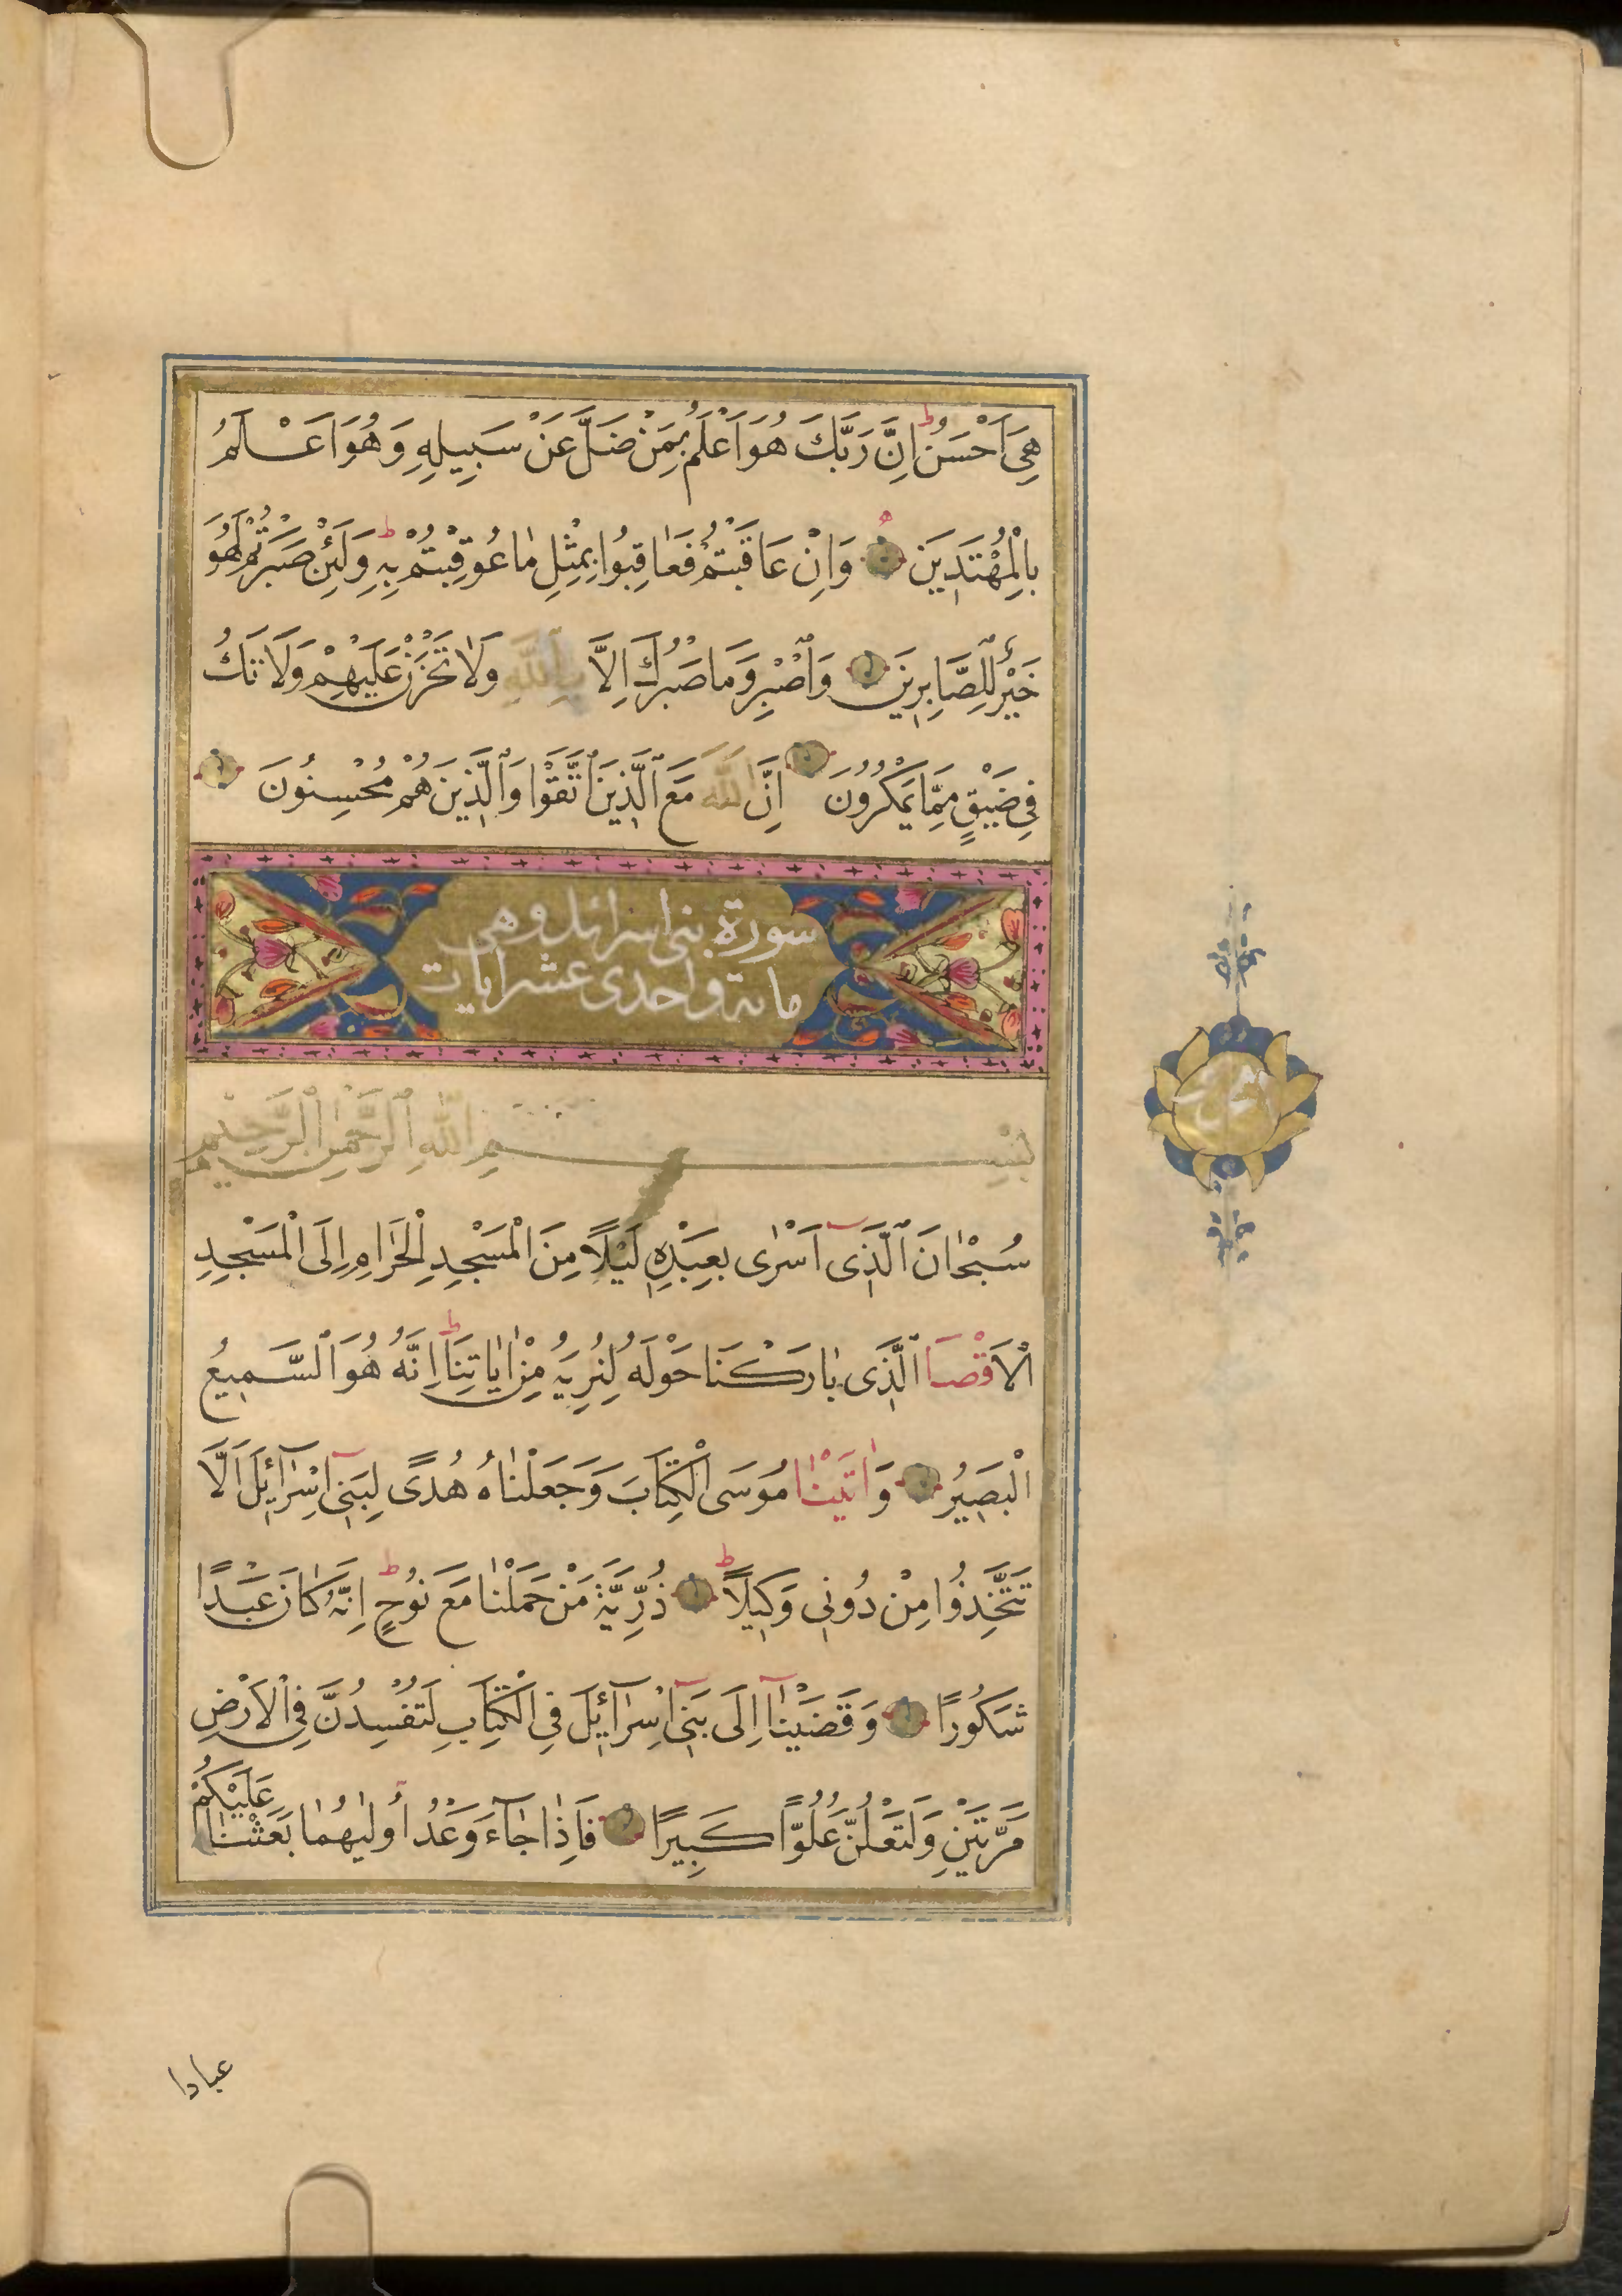 هِىَ اَحْسَنُ ط اِنَّ رَبَّكَ هُوَ اَعْلَمُ بِمَنْ ضَلَّ عَنْ سَبِيلِهِ وَهُوَ اَعْلَمُ
بِالْمُهْتَدِينَ وَاِنْ عَاقَبْتُمْ فَعَاقِبُوا بِمِثْلِ مَا عُوقِبْتُمْ بِهِ ط وَلَئِنْ صَبَرْتُمْ لَهُوَ
خَيْرٌ لِلصَّابِرِينَ وَاصْبِرْ وَمَا صَبْرُكَ اِلَّا بِاللّٰهِ وَلَا تَحْزَنْ عَلَيْهِمْ وَلَا تَكُ
فِى ضَيْقٍ مِمَّا يَمْكُرُونَ اِنَّ اللّٰهَ مَعَ الَّذِينَ اتَّقَوْا وَالَّذِينَ هُمْ مُحْسِنُونَ
سورة بنى اسرائل وهى
مائة واحدى عشر ايات
بِسْمِ اللّٰهِ الرَّحْمٰنِ الرَّحِيمِ
سُبْحَانَ الَّذِى اَسْرٰى بِعَبْدِهِ لَيْلًا مِنَ الْمَسْجِدِ الْحَرَامِ اِلَى الْمَسْجِدِ
الْاَقْصَا الَّذِى بَارَكْنَا حَوْلَهُ لِنُرِيَهُ مِنْ اٰيَاتِنَا ط اِنَّهُ هُوَ السَّمِيعُ
الْبَصِيرُ وَاٰتَيْنَا مُوسَى الْكِتَابَ وَجَعَلْنَاهُ هُدًى لِبَنِىٓ اِسْرَآئِلَ اَلَّا
تَتَّخِذُوا مِنْ دُونِى وَكِيلًا ط ذُرِّيَّةَ مَنْ حَمَلْنَا مَعَ نُوحٍ ط اِنَّهُ كَانَ عَبْدًا
شَكُورًا وَقَضَيْنَآ اِلَى بَنِىٓ اِسْرَآئِلَ فِى الْكِتَابِ لَتُفْسِدُنَّ فِى الْاَرْضِ
مَرَّتَيْنِ وَلَتَعْلُنَّ عُلُوًّا كَبِيرًا فَاِذَا جَآءَ وَعْدُ اُولٰيهُمَا بَعَثْنَا عَلَيْكُمْ
عبادا